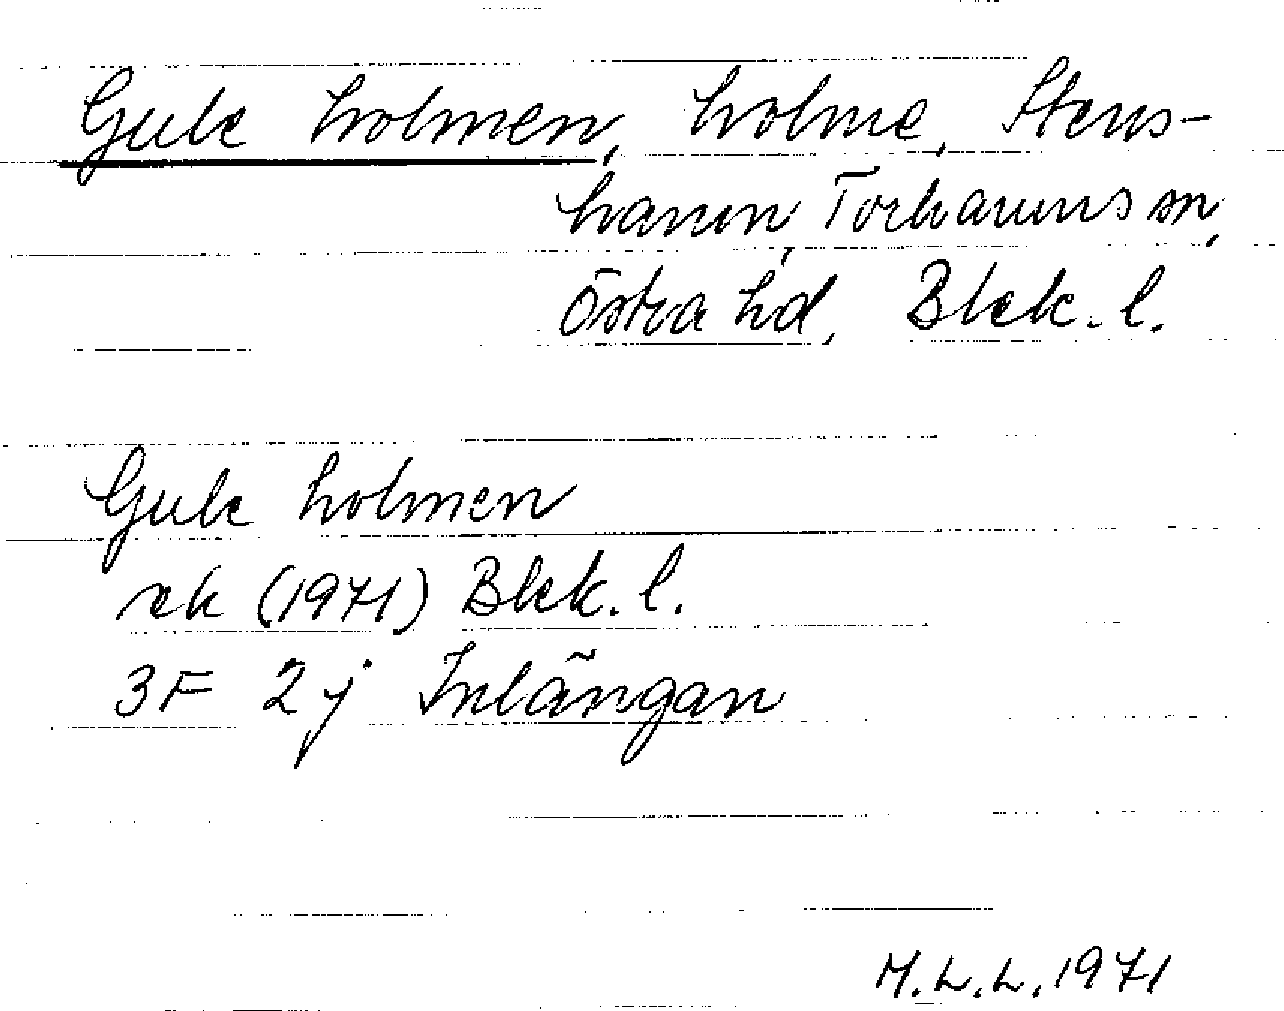 Gule holmen, holme, Stens-
hamn, Torhamns sn,
Östra hd, Blek. l.
Gule holmen
ek (1971) Blek. l.
3F 2j Inlängan
M.L.L. 1971